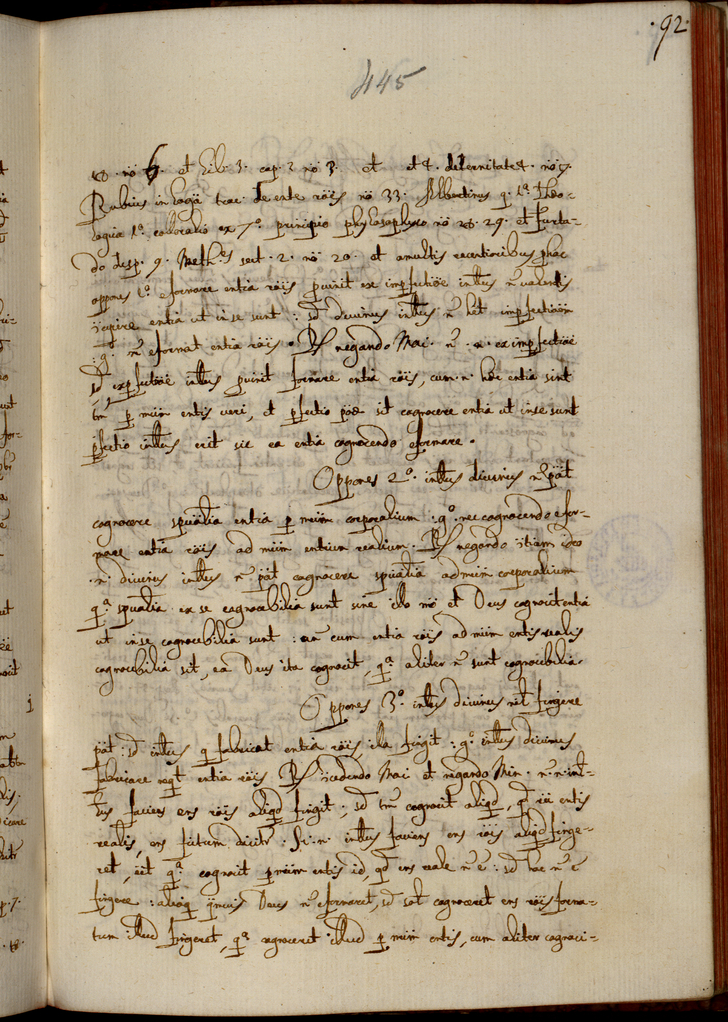 .92.
445
8. nō 6. et lib. 3. cap. 2 nō 3. et et 4. de eternitate 4. nō 7.
Rubius in logā trac. de ente rōis nō 33. Albertinus q. 1.ª theo-
logica 1.º corolario ex 7.º principio phylosophyco nō 28. 29. et furta-
do disp. 9. Meth.es sect. 2. nō 20. et a multis recentioribus phāc
oppones 1.º efformare entia rōis puinit ex imperfectiōe intlus n̄ valentis
cipire entia ut in se sunt : sd divinus intlus n̄ het imperfectiōem
: g.º n̄ efformat entia rōis. Rs negando Mai. n̄. n. ex imperfectiōe
sd ex perfectiōe intlus puinit formare entia rōis, cum. n. hæc entia sint
tm̄ p mūm entis veri, et pfectio poē sit cognocere entia ut in se sunt
pfectio intlus erit sic ea entia cognocendo efformare.
Oppones 2.º intlus divinus n̄ pāt
cognocere spūalia entia p mūm corporalium : g.º nec cognocendo efor-
mare entia rōis ad mūm entium realium. Rs negando itiam ideo
.n. divinus intlus n̄ pāt cognocere spūalia ad mūm corporalium
q.ª spūalia ex se cognocibilia sunt sine illo mō, et Deus cognocit entia
ut in se cognocibilia sunt : cum entia rōis ad mūm entis realis
cognocibilia sit, ea Deus ita cognocit, q.ª aliter n̄ sunt cognocibilia.
Oppones 3.º intlus divinus nēl fingere
pāt : sd intlus q fabricat entia rōis, illa fingit : g.º intlus divinus
fabricare neqt entia rōis Rs cedendo Mai et negando Min. n. n. intl-
lus faciens ens rōis aliqd fingit ; sd tm̄ cognocit aliqd, qd entis
realis, ens fictum dicitr. Si. n. intlus faciens ens rōis aliqd finge-
ret, eēt q.ª cognocit p mūm entis id, qd ens reale n̄ ē : sd hoc n̄ ē
fingere : alioq qmvis Deus n̄ efformaret, sd sol cognoceret ens rōis forma-
tum illud fingeret, q.ª cognoceret illud p mūm entis, cum aliter cognoci-